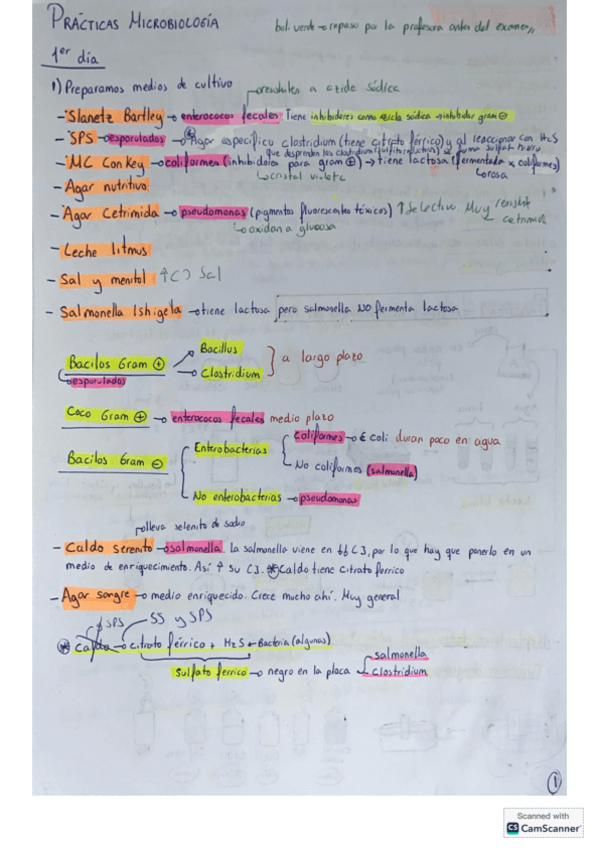 PRÁCTICAS MICROBIOLOGÍA
bol. verde → repaso por la profesora antes del examen,,
1er día
1) Preparamos medios de cultivo
resistentes a azida sódica
- Slanetz Bartley → enterococos fecales Tiene inhibidores como azida sódica → inhibidor gram ⊖
- SPS → esporulados → Agar específico clostridium (tiene citrato férrico) y al reaccionar con H2S
que desprenden los clostridium (sulfito reductores)
- MC Conkey → coliformes (inhibidores para gram ⊕) → tiene lactosa (fermentada x coliformes)
↳ cristal violeta
↳ rosa
- Agar nutritivo
- Agar Cetrimida → pseudomonas (pigmentos fluorescentes tóxicos) ↑ Selectivo Muy resist
cetrimida
↳ oxidan a glucosa
- Leche litmus
- Sal y manitol ↑ C) Sal
- Salmonella Ishigela → tiene lactosa pero salmonella NO fermenta lactosa
Bacilos Gram ⊕
Bacillus
Clostridium
a largo plazo
↳ esporulados
Coco Gram ⊕ → enterococos fecales medio plazo
Bacilos Gram ⊖
Enterobacterias
Coliformes → E coli duran poco en agua
No coliformes (salmonella)
No enterobacterias → pseudomonas
lleva selenito de sodio
- Caldo Serenito → salmonella. La salmonella viene en ↓↓ C], por lo que hay que ponerlo en un
medio de enriquecimiento. Así ↑ su C]. ⊛ Caldo tiene citrato ferrico
- Agar sangre → medio enriquecido. Crece mucho ahí. Muy general
SPS
SS y SPS
⊛ Caldo → citrato férrico + H2S ← Bacteria (algunas)
sulfato ferrico → negro en la placa
salmonella
clostridium
1
Scanned with
CS CamScanner